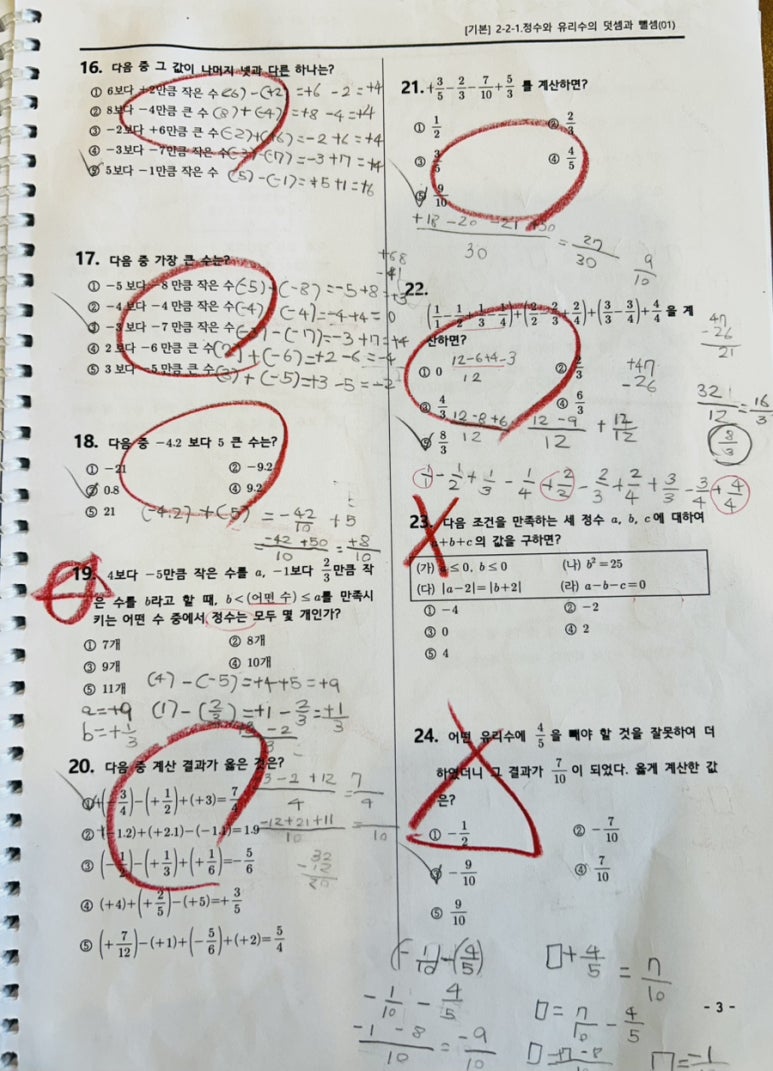 [기본] 2-2-1.정수와 유리수의 덧셈과 뺄셈(01)
16. 다음 중 그 값이 나머지 넷과 다른 하나는?
① 6보다 +2만큼 작은 수 (6)-(+2)=+6-2=+4
② 8보다 -4만큼 큰 수 (8)+(-4)=+8-4=+4
③ -2보다 +6만큼 큰 수 (-2)+(+6)=-2+6=+4
④ -3보다 -7만큼 작은 수 (-3)-(-7)=-3+7=+4
⑤ 5보다 -1만큼 작은 수 (5)-(-1)=+5+1=+6
17. 다음 중 가장 큰 수는?
① -5보다 -8만큼 작은 수 (-5)-(-8)=-5+8=+3
② -4보다 -4만큼 작은 수 (-4)-(-4)=-4+4=0
③ -3보다 -7만큼 작은 수 (-3)-(-7)=-3+7=+4
④ 2보다 -6만큼 큰 수 (2)+(-6)=+2-6=-4
⑤ 3보다 -5만큼 큰 수 (3)+(-5)=+3-5=-2
18. 다음 중 -4.2 보다 5 큰 수는?
① -21 ② -9.2
③ 0.8 ④ 9.2
⑤ 21 (-4.2)+(5) = -42/10 + 5
= -42+50/10 = +8/10
19. 4보다 -5만큼 작은 수를 a, -1보다 2/3만큼 작
은 수를 b라고 할 때, b<(어떤 수)≤a를 만족시
키는 어떤 수 중에서 정수는 모두 몇 개인가?
① 7개 ② 8개
③ 9개 ④ 10개
⑤ 11개 (4)-(-5)=+4+5=+9
a=+9 (1)-(2/3)=+1-2/3=+1/3
b=+1/3
20. 다음 중 계산 결과가 옳은 것은?
① (-3/4)-(+1/2)+(+3)=7/4
3-2+12/4 = 7/4
② (-1.2)+(+2.1)-(-1.1)=1.9
-12+21+11/10 = /10
③ (-1/2)-(+1/3)+(+1/6)=-5/6
④ (+4)+(+2/5)-(+5)=+3/5
⑤ (+7/12)-(+1)+(-5/6)+(+2)=5/4
21. +3/5-2/3-7/10+5/3 를 계산하면?
① 1/2 ② 2/3
③ 3/5 ④ 4/5
⑤ 9/10
+18-20-21+50/30 = 27/30 9/10
22.
(1/1-1/2+1/3-1/4)+(2/2-2/3+2/4)+(3/3-3/4)+4/4 을 계
산하면?
① 0 ② 2/3
12-6+4-3/12
+47
-26
③ 4/3 ④ 6/3
⑤ 8/3
12-8+6/12 12-9/12 + 12/12
47
-26
21
8/3
1/1-1/2+1/3-1/4+2/2-2/3+2/4+3/3-3/4+4/4
23. 다음 조건을 만족하는 세 정수 a, b, c에 대하여
a+b+c의 값을 구하면?
(가) a≤0, b≤0 (나) b²=25
(다) |a-2|=|b+2| (라) a-b-c=0
① -4 ② -2
③ 0 ④ 2
⑤ 4
24. 어떤 유리수에 4/5 을 빼야 할 것을 잘못하여 더
하였더니 그 결과가 7/10 이 되었다. 옳게 계산한 값
은?
① -1/2 ② -7/10
③ -9/10 ④ 7/10
⑤ 9/10
(-1/10)-(4/5)
-1/10 - 4/5
-1-8/10 = -9/10
□+4/5 = 7/10
□=7/10-4/5
- 3 -